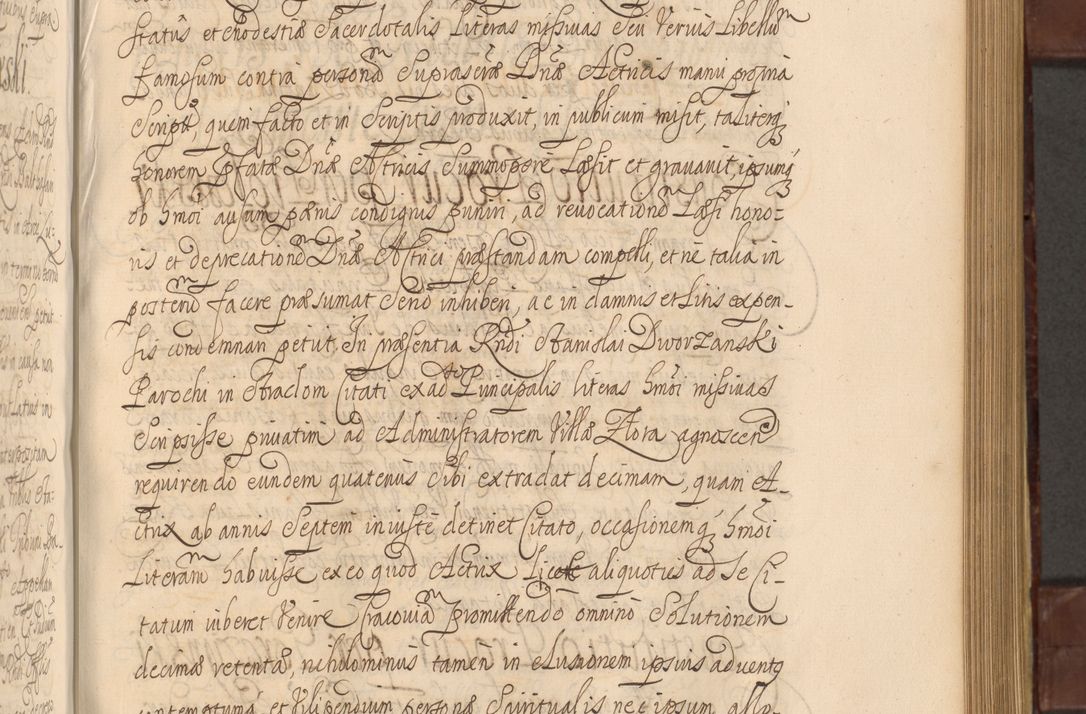 statûs et modestiæ Sacerdotalis literas missivas seu verius Libellũ
famosum contra personã Suprascriptæ Dnæ Actricis manu propria
Script, quem facto et in Scriptis produxit, in publicum misit, taliterq
honorem Pfatæ Dnæ Actricis Summopere Læsit et gravavit, ipsumq
ob hmõi ausum pænis condignis puniri, ad revocationẽ Læsi hono-
ris et deprecationẽ Dnæ Actrici præstandam compelli, et ne talia in
posterũ facere præsumat Serio inhiberi, ac in damnis et Litis expen-
sis condemnari petiit. In præsentia Rndi Stanislai Dworzanski
Parochi in Straclom Citati ex ad Principalis literas hmõi missivas
Scripsisse privatim ad Administratorem Villæ Zlota agnoscen
requirendo eundem quatenus Sibi extradat decimam, quam A-
ctrix ab annis Septem iniuste detinet Citato, occasionemq hmõi
Literarũ habuisse ex eo quod Actrix aliquoties ad Se Ci-
tatum iuberet venire Cracoviã promittendo omnino Solutionem
decimæ retentæ, nihilominus tamen in elusionem ipsius adventq
contemptumq et Vilipendium personæ Spiritualis nec ipsum allo-